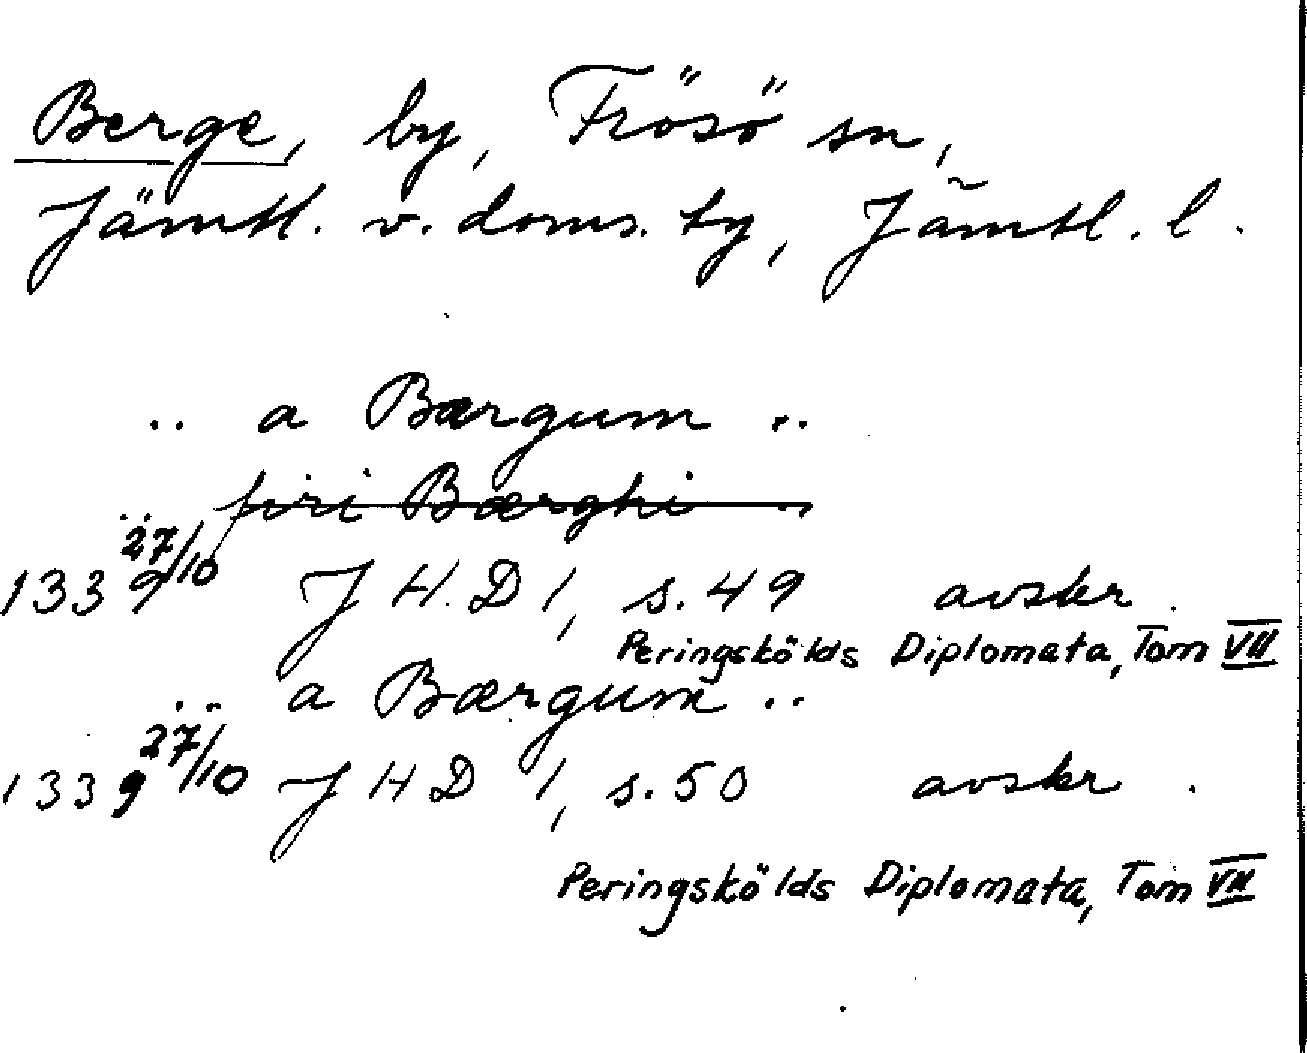 Berge, by, Frösö sn,
Jämtl. v. doms. ty, Jämtl. l.
.. a Bærgum ..
.. firi Bærghi ..
1339 27/10 J H. D 1, s. 49 avskr.
Peringskölds Diplomata, Tom VII
.. a Bærgum ..
1339 27/10 J H D 1, s. 50 avskr.
Peringskölds Diplomata, Tom VII